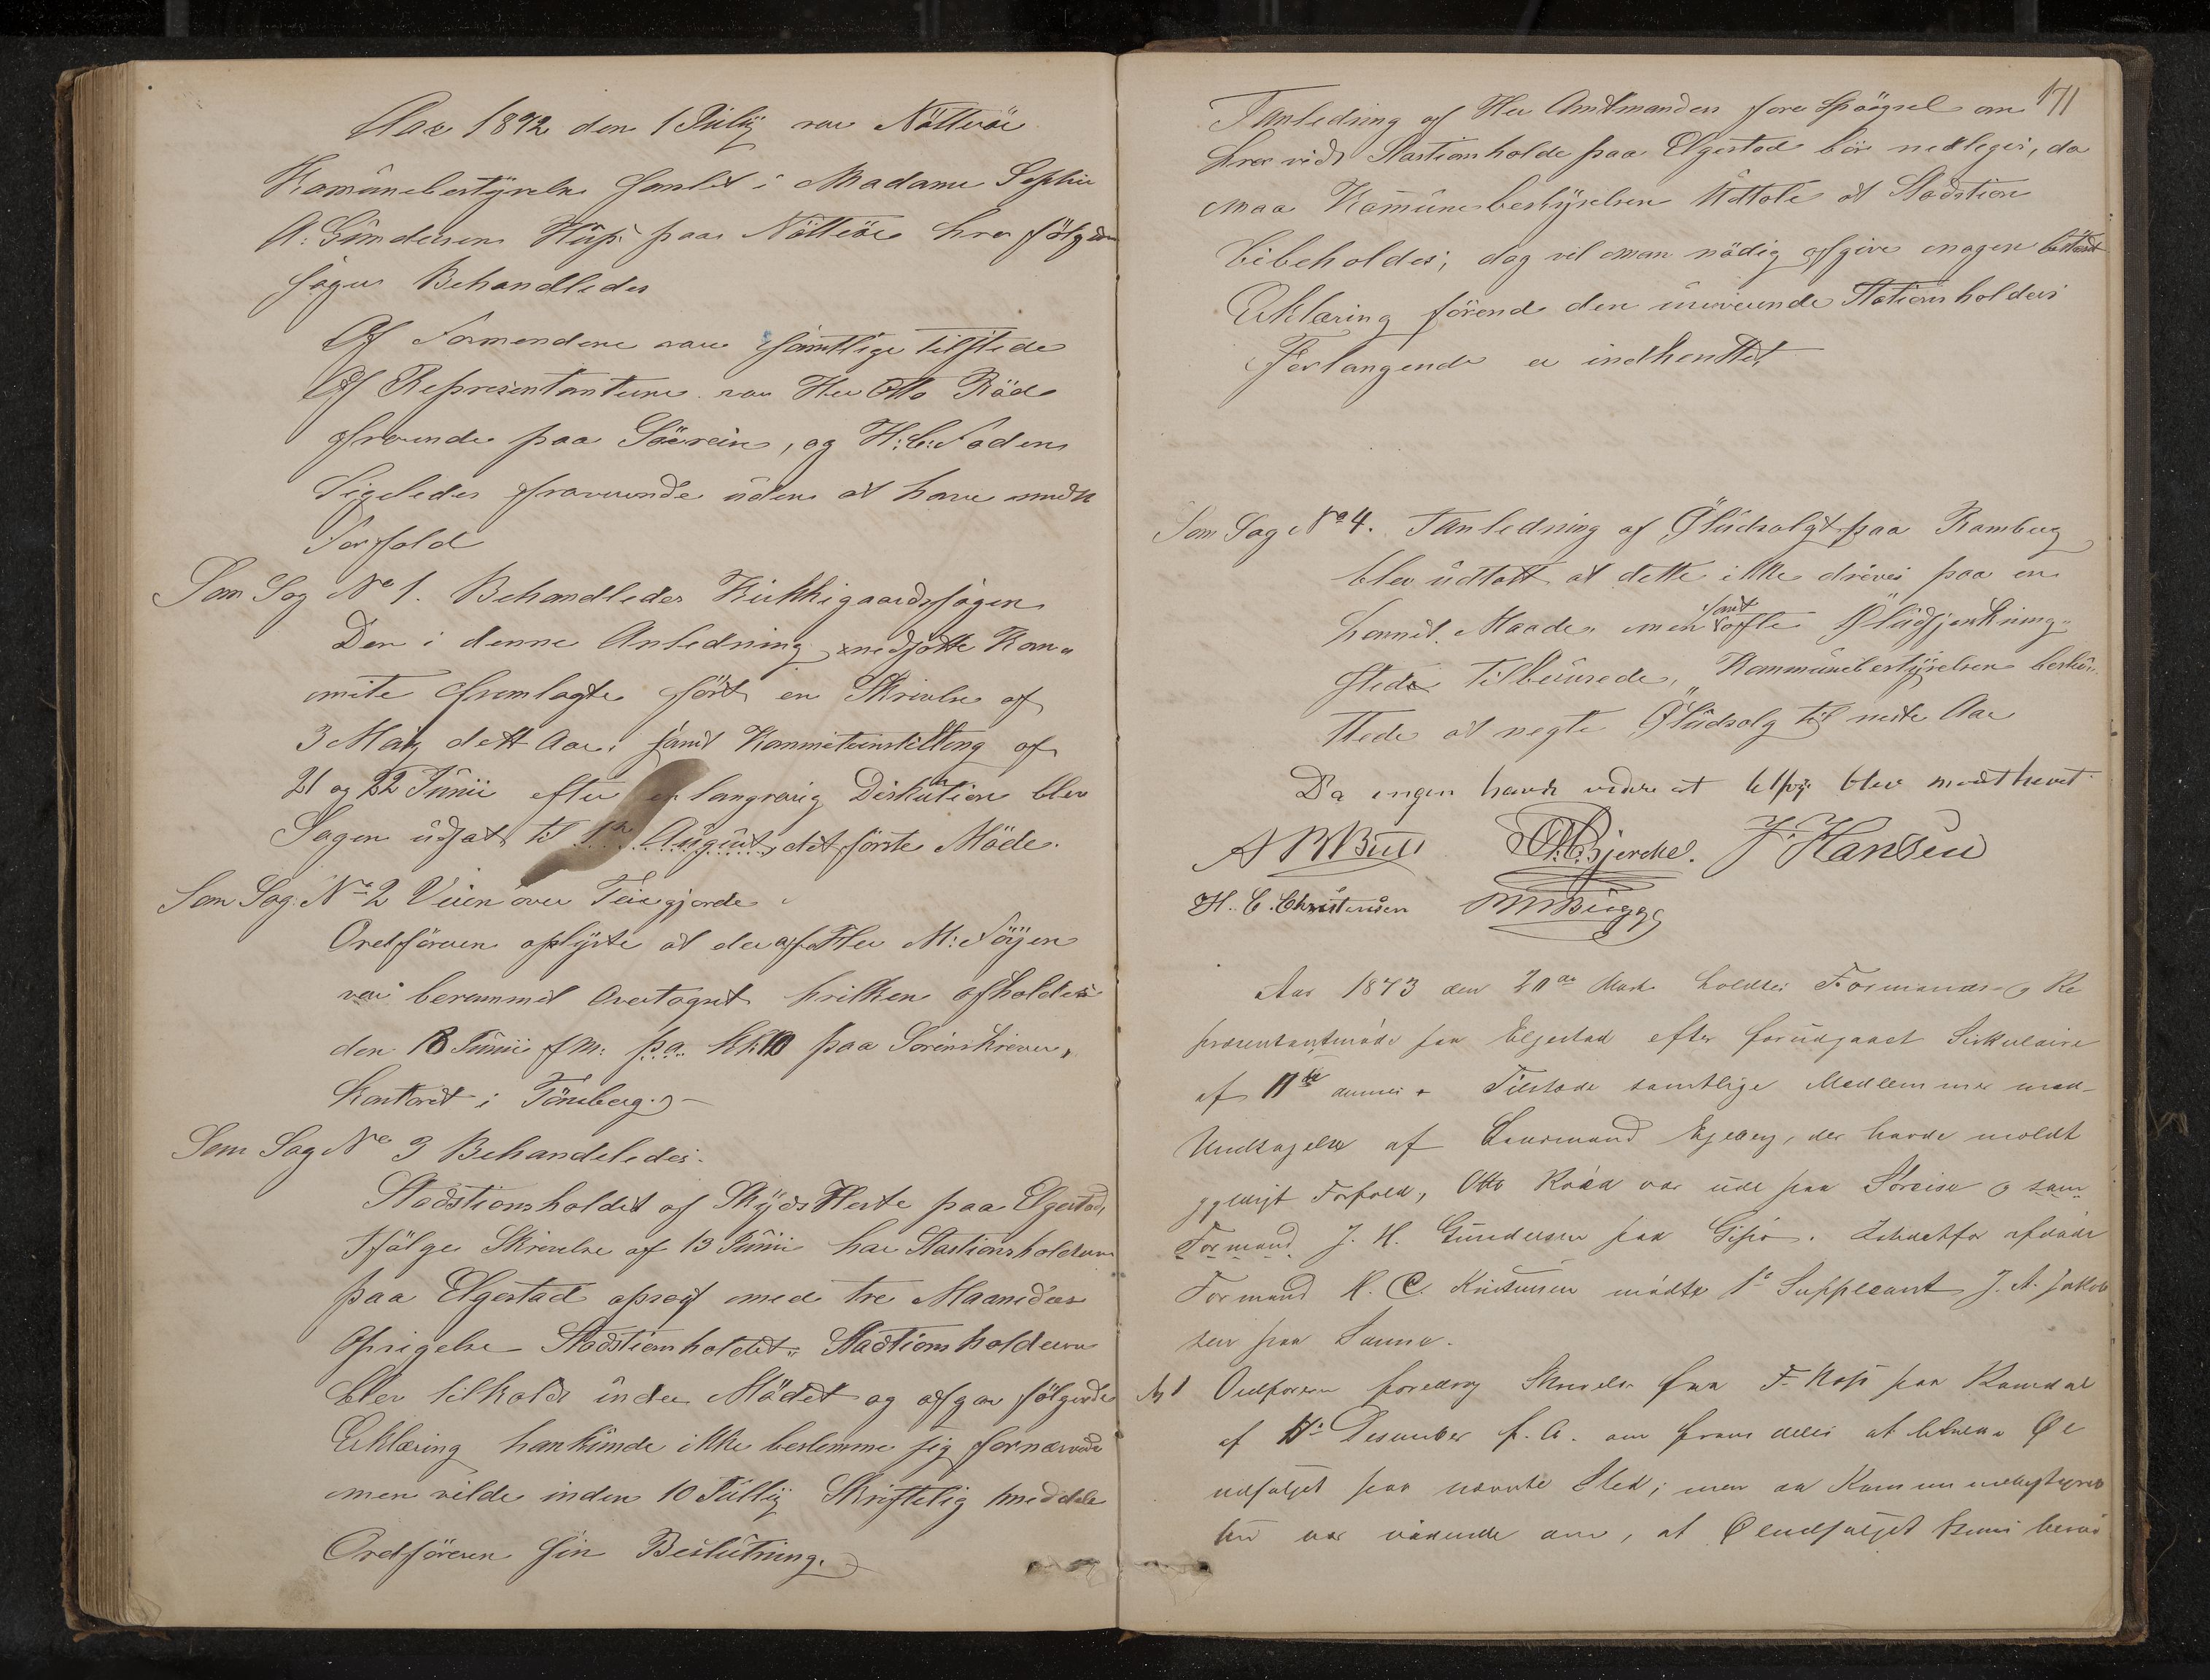 Aar 1872 den 1 Juliÿ var Nötteröe
Kamünebestÿrelse samlet i Madame Sophie
A: Gündersens Hüse paa Nötteröe hvor fölgen
sager Behandledes
Af Formendene vare samtlige tilstede
Af Representanterne var Her Otto Röd
fraverende paa Söerein, og H: C: Foden
Ligeledes fraverende üden at have meldt
Forfald
Som Sag No 1. Behandledes Kirkkigaardssagen
Den i denne Anledning nedsatte Kom
mite fremlagte först en Skrivelse af
3 Maÿ dett Aar, samt Kommiteinstilling af
21 og 22 Jünii efter en langvarig Disküsion blev
Sagen üdsat til 1ste Augüst, det förste Möde.
Som Sag: No 2 Veien over Teiegjorde
Ordföreren oplÿste at der af Her M: Föÿen
var berammet Overtagst hvilken afholdes
den 18 Jünii f m: pa Kl: 10 paa Sorinskriver
kontoret i Tönsberg.
Som Sag No 3 Behandeledes.
Stadstionsholdet af Skÿds Heste paa Elgestad,
Ifölge Skrivelse af 13 Jünii har Stastionsholderen
paa Elgestad opsagt med tre Maaneders
Opsigelse Stadstionsholdet. Stadtionsholderen
blev tilkaldt ünder Mödet og afgav fölgende
Erklæring han künde ikke bestemme sig fornærvede
men vilde inden 10 Jülliÿ Skriftelig meddele
Ordföreren sin Beslütning.
171
I Anledning af Her Amtmandens fore spörgsel om
hver vidt Stastionsholde paa Elgestad bör nedleges, da
maa Kamünebestÿrelsen Üdtale at Stadstion
bibeholdes; dog vil man nödig afgive nogen bestemt
Erklæring förend den nuværende Stationsholders
Forlangende er indhenttet
Som Sag No 4. I Anledning af Ölüdsalgt paa Ramberg
blev üdtalt at dette ikke dröves paa en
hennd. Maade, men samt ofte Ölüdsjenkning
steds Tilbüirede, Kommünebestÿrelsen beslü
ttede at negte Ölüdsalg til neste Aar
Da ingen havde videre at tilföje blev mödet hævet
A M Büll O. C. Bjerche. J. Hansen
H. C. Christensen M Bügge
Aar 1873 den 20de Marts holdtes Formands- og Re
præsentantmöde paa Elgestad efter forudgaaet Sirkulaire
af 11te dennes. Tilstede samtlige Medlemmer med
Undtagelse af Lensmand Egeberg, der havde meldt
gyldigt Forfald, Otto Röed var ude paa Söreise og sam
Formand J. H. Gundersen paa Gipö. Istedetfor afdöde
Formand H. C. Kristensen mödte 1ste Suppleant J. A. Jakob
sen paa Sanne.
No 1 Ordföreren foredrog Skrivelse fra F. Kops paa Ramdal
af 11te Desember f. A. om fremdeles at bedrive Øl
udsalget paa nævnte Sted; men da Kommunebestyrel
sen var vidende om, at Øludsalget